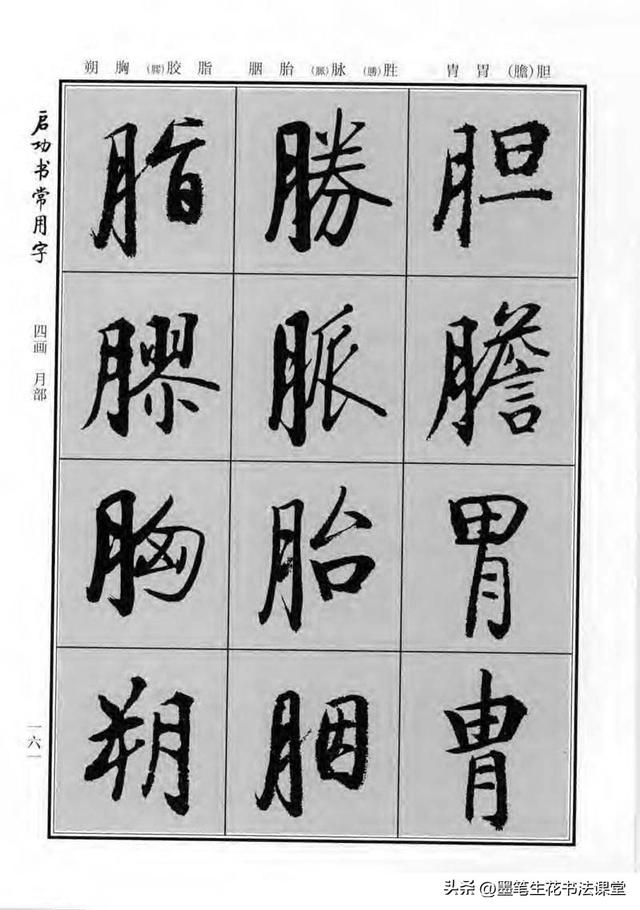 朔 胸 (膠)胶 脂 胭 胎 (脈)脉 (勝)胜 胄 胃 (膽)胆
启功书常用字
四画 月部
一六一
脂 勝 胆
膠 脈 膽
胸 胎 胃
朔 胭 胄
头条 @墨笔生花书法课堂